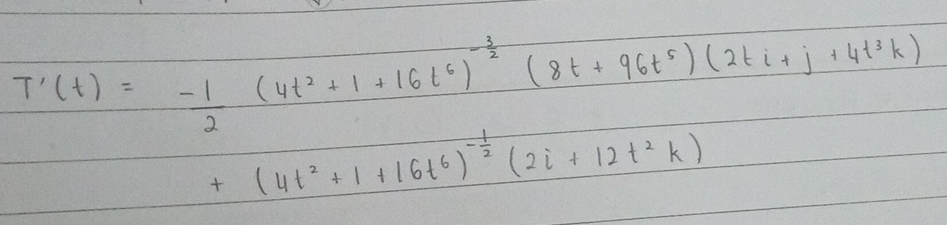 T'(t) = -1/2 (4t² + 1 + 16t⁶)^(-3/2) (8t + 96t⁵)(2ti + j + 4t³k)
+ (4t² + 1 + 16t⁶)^(-1/2) (2i + 12t² k)